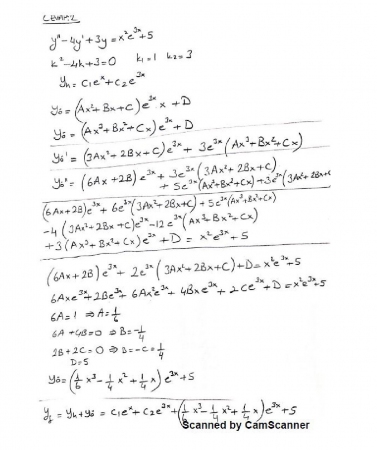 CEVAP:2
y'' - 4y' + 3y = x²e^{3x} + 5
k² - 4k + 3 = 0   k₁ = 1   k₂ = 3
y_h = c₁e^x + c₂e^{3x}
yö = (Ax² + Bx + C)e^{3x} x + D
yö = (Ax³ + Bx² + Cx)e^{3x} + D
yö' = (3Ax² + 2Bx + C)e^{3x} + 3e^{3x}(Ax³ + Bx² + Cx)
yö'' = (6Ax + 2B)e^{3x} + 3e^{3x}(3Ax² + 2Bx + C)
+ 5e^{3x}(Ax³ + Bx² + Cx) + 3e^{3x}(3Ax² + 2Bx + C
(6Ax + 2B)e^{3x} + 6e^{3x}(3Ax² + 2Bx + C) + 5e^{3x}(Ax³ + Bx² + Cx)
-4(3Ax² + 2Bx + C)e^{3x} - 12e^{3x}(Ax³ + Bx² + Cx)
+ 3(Ax³ + Bx² + Cx)e^{3x} + D = x²e^{3x} + 5
(6Ax + 2B)e^{3x} + 2e^{3x}(3Ax² + 2Bx + C) + D = x²e^{3x} + 5
6Axe^{3x} + 2Be^{3x} + 6Ax²e^{3x} + 4Bxe^{3x} + 2Ce^{3x} + D = x²e^{3x} + 5
6A = 1 ⇒ A = 1/6
6A + 4B = 0 ⇒ B = -1/4
2B + 2C = 0 ⇒ B = -C = 1/4
D = 5
yö = (1/6 x³ - 1/4 x² + 1/4 x)e^{3x} + 5
y_g = y_h + yö = c₁e^x + c₂e^{3x} + (1/6 x³ - 1/4 x² + 1/4 x)e^{3x} + 5
Scanned by CamScanner